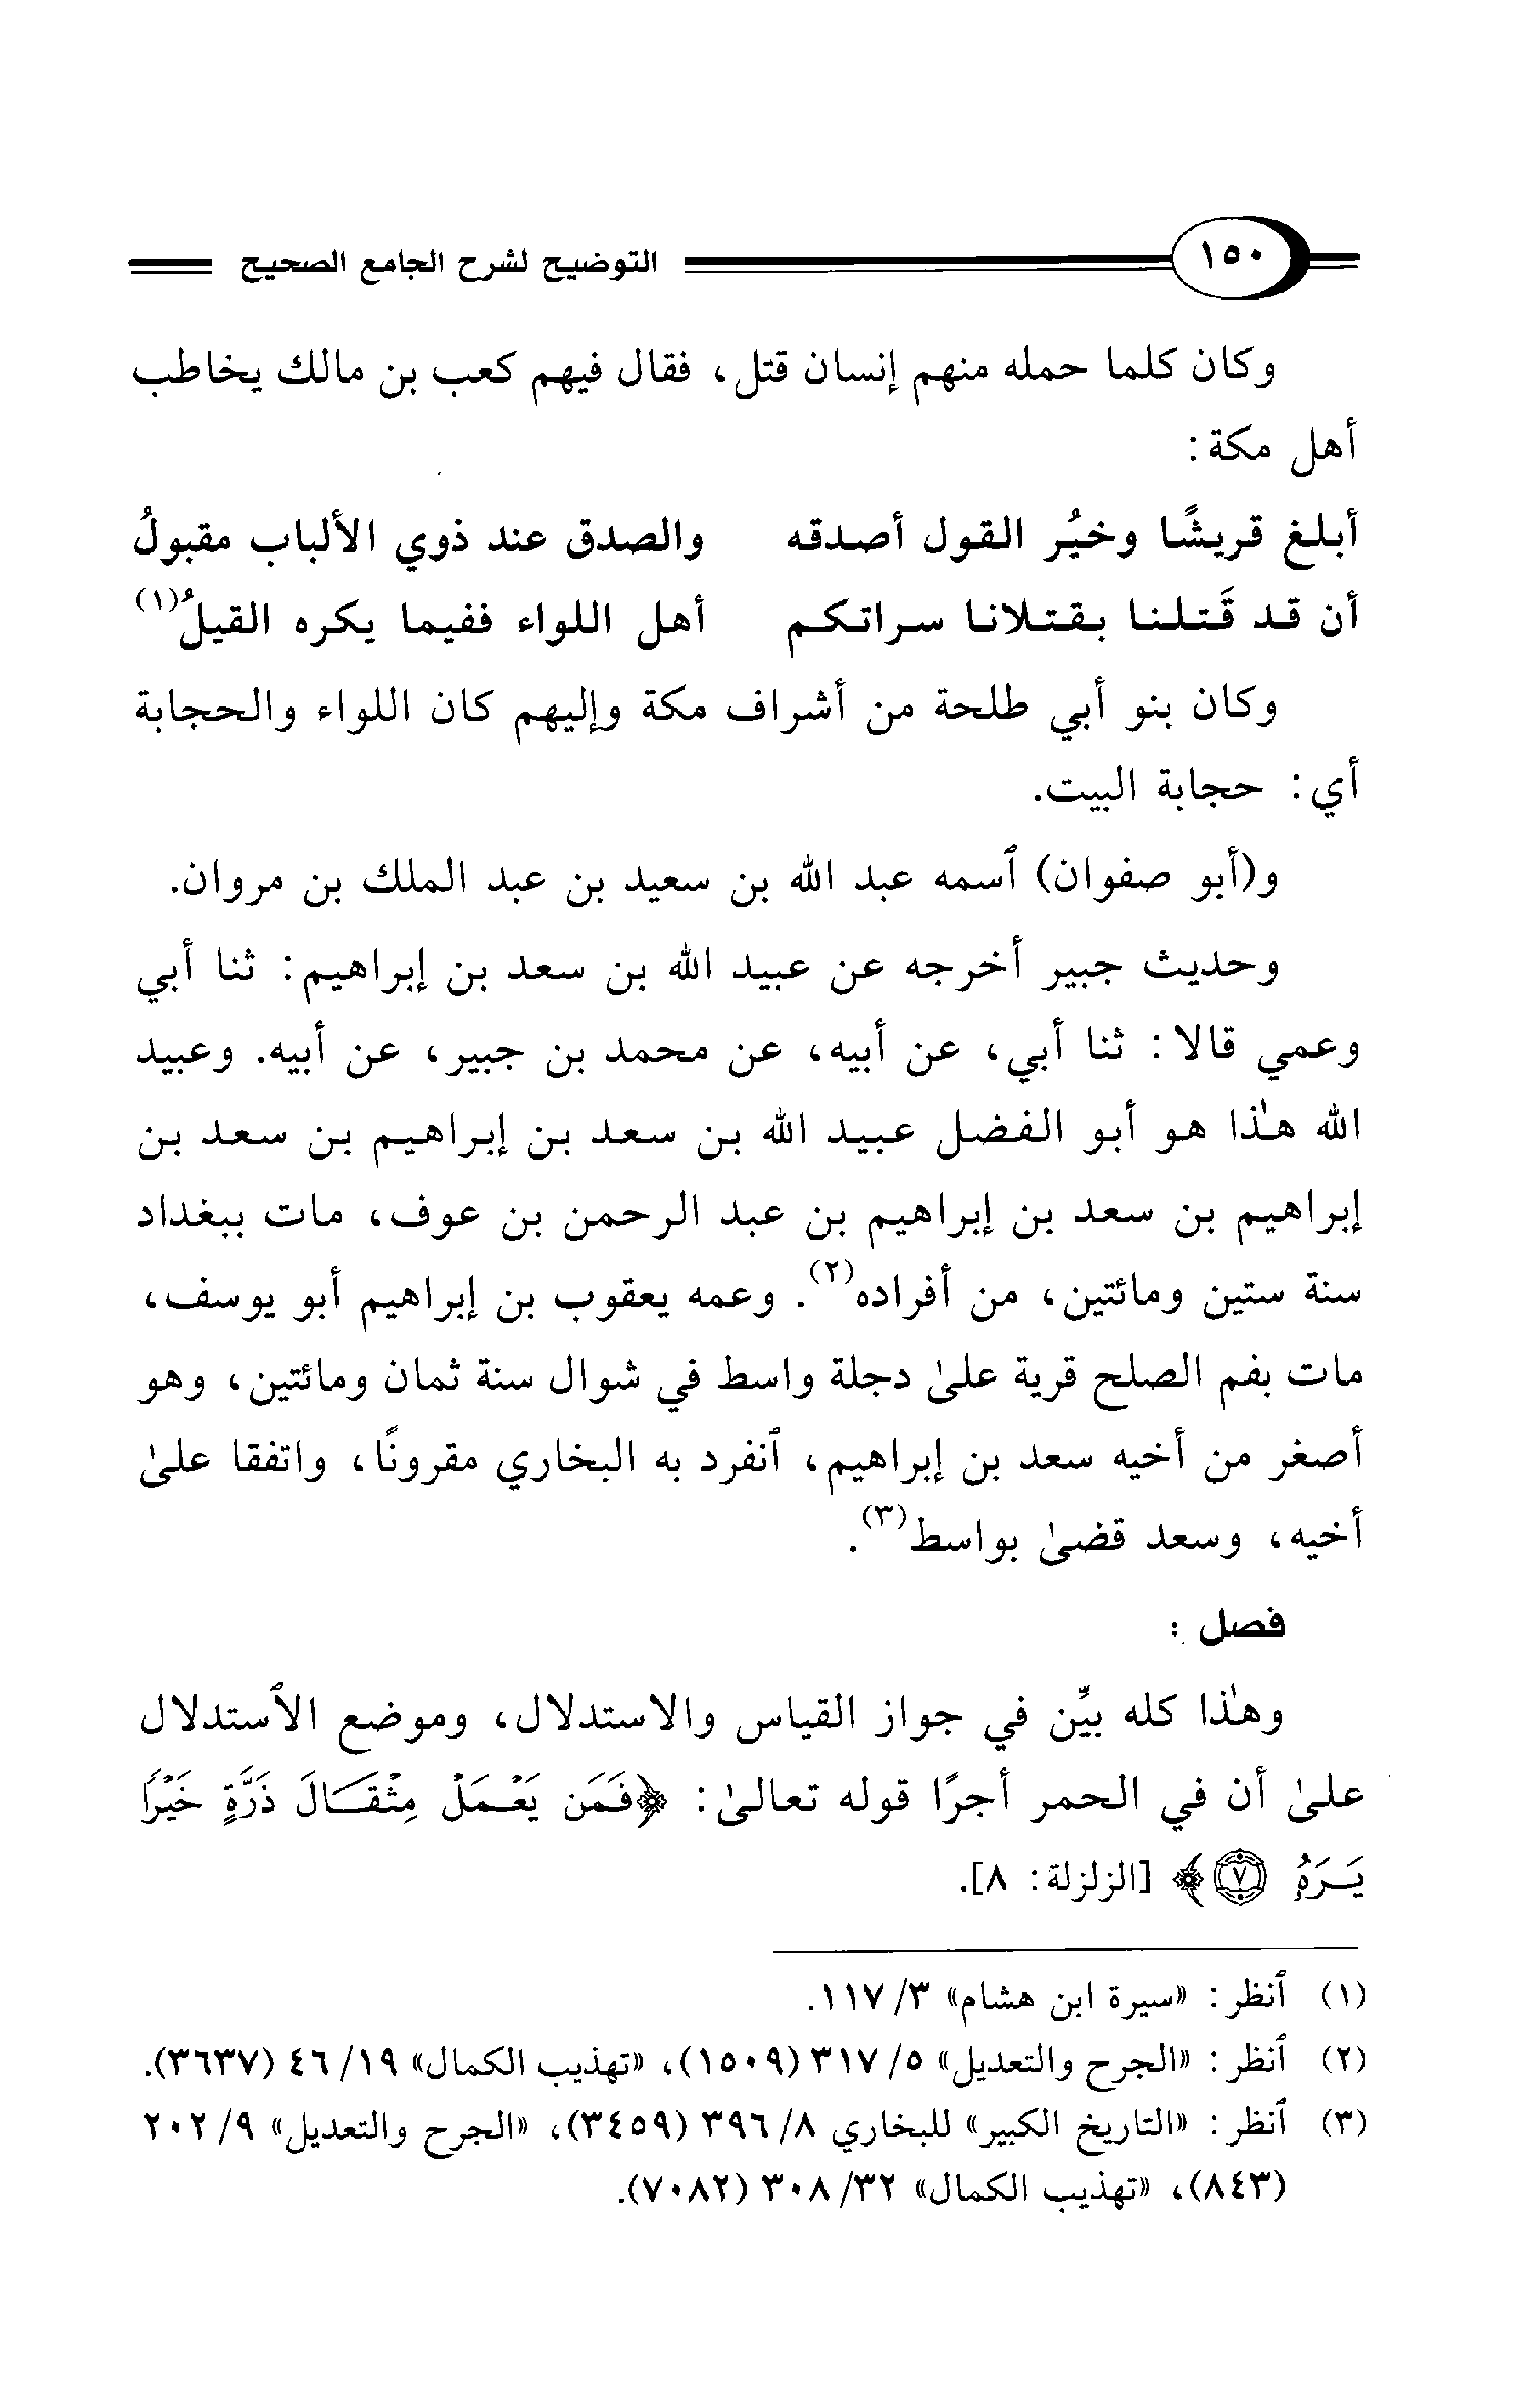 ١٥٠ التوضيح لشرح الجامع الصحيح
وكان كلما حمله منهم إنسان قتل، فقال فيهم كعب بن مالك يخاطب
أهل مكة:
أبلغ قريشًا وخيُر القول أصدقه والصدق عند ذوي الألباب مقبولُ
أن قد قَتلنا بقتلانا سراتكم أهل اللواء ففيما يكره القيلُ(١)
وكان بنو أبي طلحة من أشراف مكة وإليهم كان اللواء والحجابة
أي: حجابة البيت.
و(أبو صفوان) ٱسمه عبد الله بن سعيد بن عبد الملك بن مروان.
وحديث جبير أخرجه عن عبيد الله بن سعد بن إبراهيم: ثنا أبي
وعمي قالا: ثنا أبي، عن أبيه، عن محمد بن جبير، عن أبيه. وعبيد
الله هٰذا هو أبو الفضل عبيد الله بن سعد بن إبراهيم بن سعد بن
إبراهيم بن سعد بن إبراهيم بن عبد الرحمن بن عوف، مات ببغداد
سنة ستين ومائتين، من أفراده(٢). وعمه يعقوب بن إبراهيم أبو يوسف،
مات بفم الصلح قرية علىٰ دجلة واسط في شوال سنة ثمان ومائتين، وهو
أصغر من أخيه سعد بن إبراهيم، ٱنفرد به البخاري مقرونًا، واتفقا علىٰ
أخيه، وسعد قضىٰ بواسط(٣).
فصل:
وهٰذا كله بيِّن في جواز القياس والاستدلال، وموضع الٱستدلال
علىٰ أن في الحمر أجرًا قوله تعالىٰ: ﴿فَمَن يَعْمَلْ مِثْقَالَ ذَرَّةٍ خَيْرًا
يَرَهُ ٧﴾ [الزلزلة: ٨].
(١) ٱنظر: «سيرة ابن هشام» ٣/ ١١٧.
(٢) ٱنظر: «الجرح والتعديل» ٥/ ٣١٧ (١٥٠٩)، «تهذيب الكمال» ١٩/ ٤٦ (٣٦٣٧).
(٣) ٱنظر: «التاريخ الكبير» للبخاري ٨/ ٣٩٦ (٣٤٥٩)، «الجرح والتعديل» ٩/ ٢٠٢
(٨٤٣)، «تهذيب الكمال» ٣٢/ ٣٠٨ (٧٠٨٢).